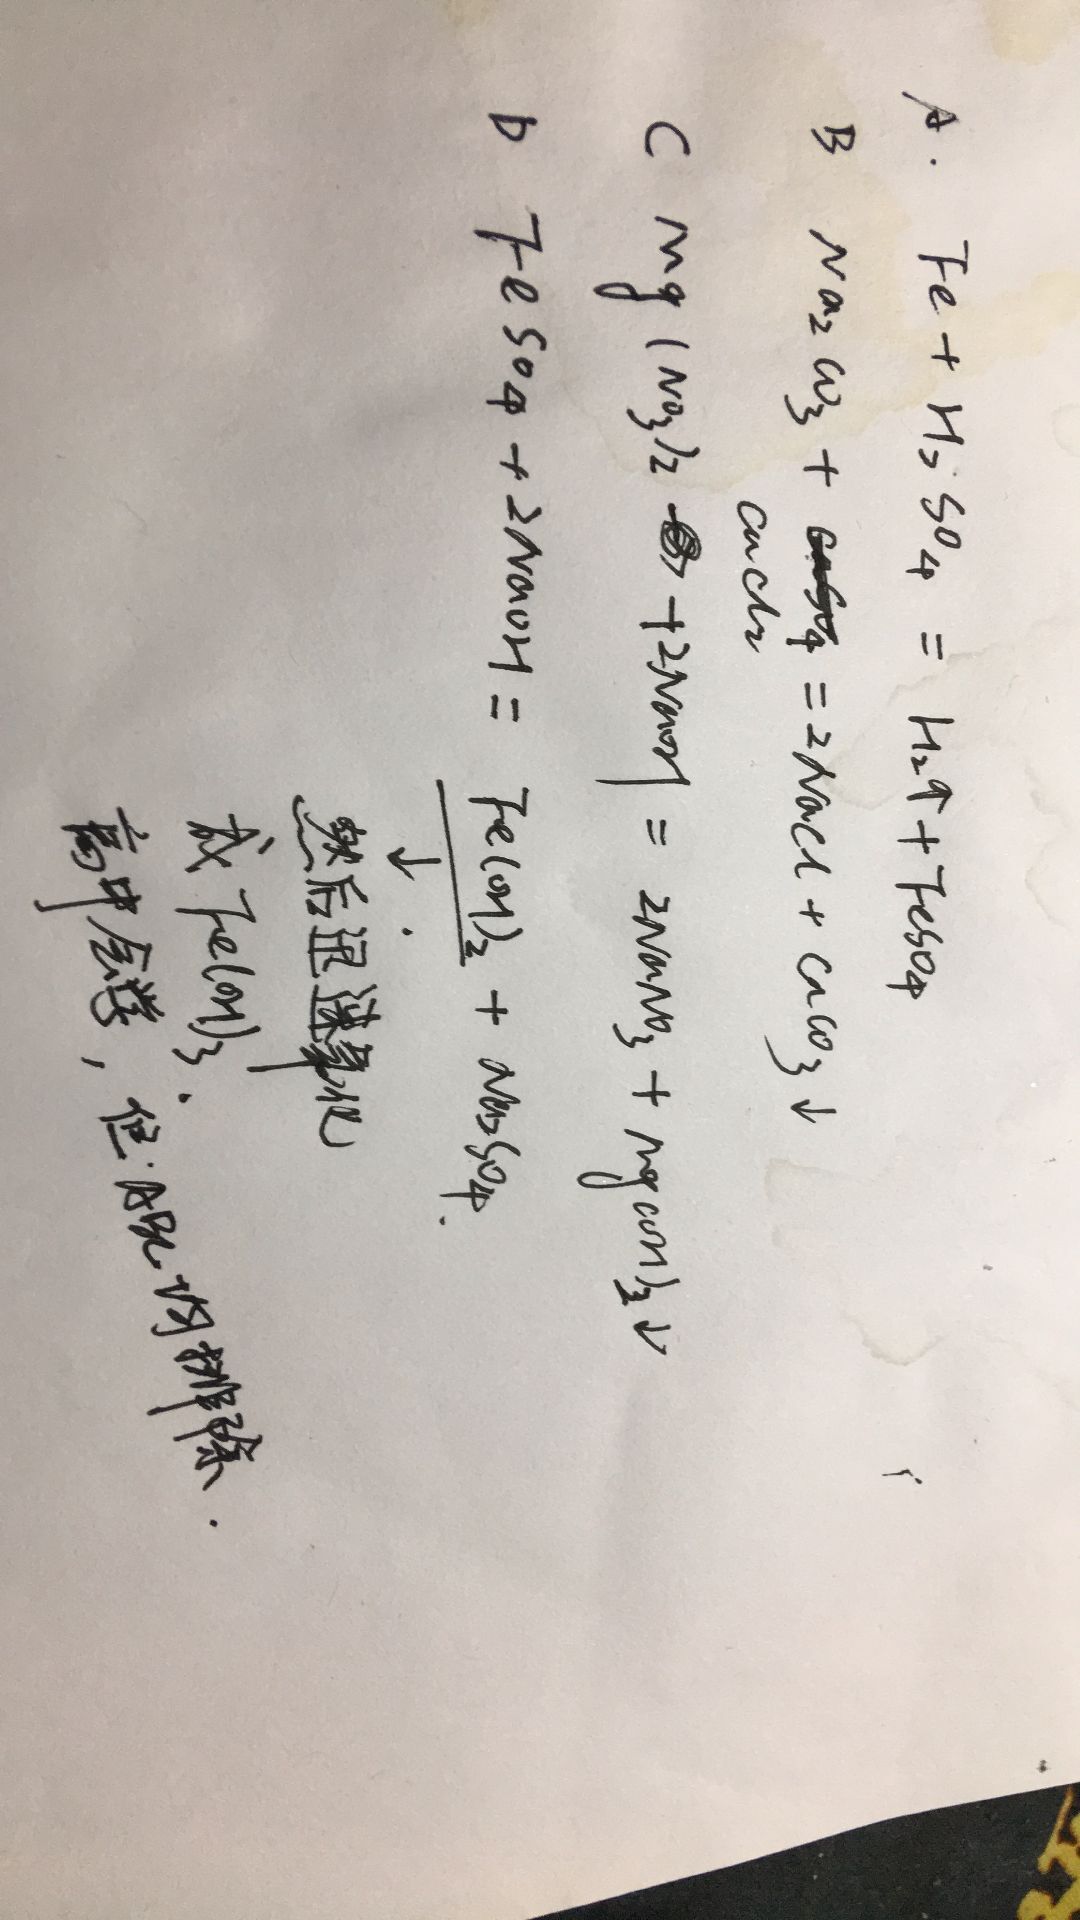 A. Fe + H₂SO₄ = H₂↑ + FeSO₄
B Na₂CO₃ + CaCl₂ = 2NaCl + CaCO₃↓
C Mg(NO₃)₂ + 2NaOH = 2NaNO₃ + Mg(OH)₂↓
D FeSO₄ + 2NaOH = Fe(OH)₂ + Na₂SO₄.
↓
然后迅速氧化
成 Fe(OH)₃.
高中会学, 但ABC均排除.